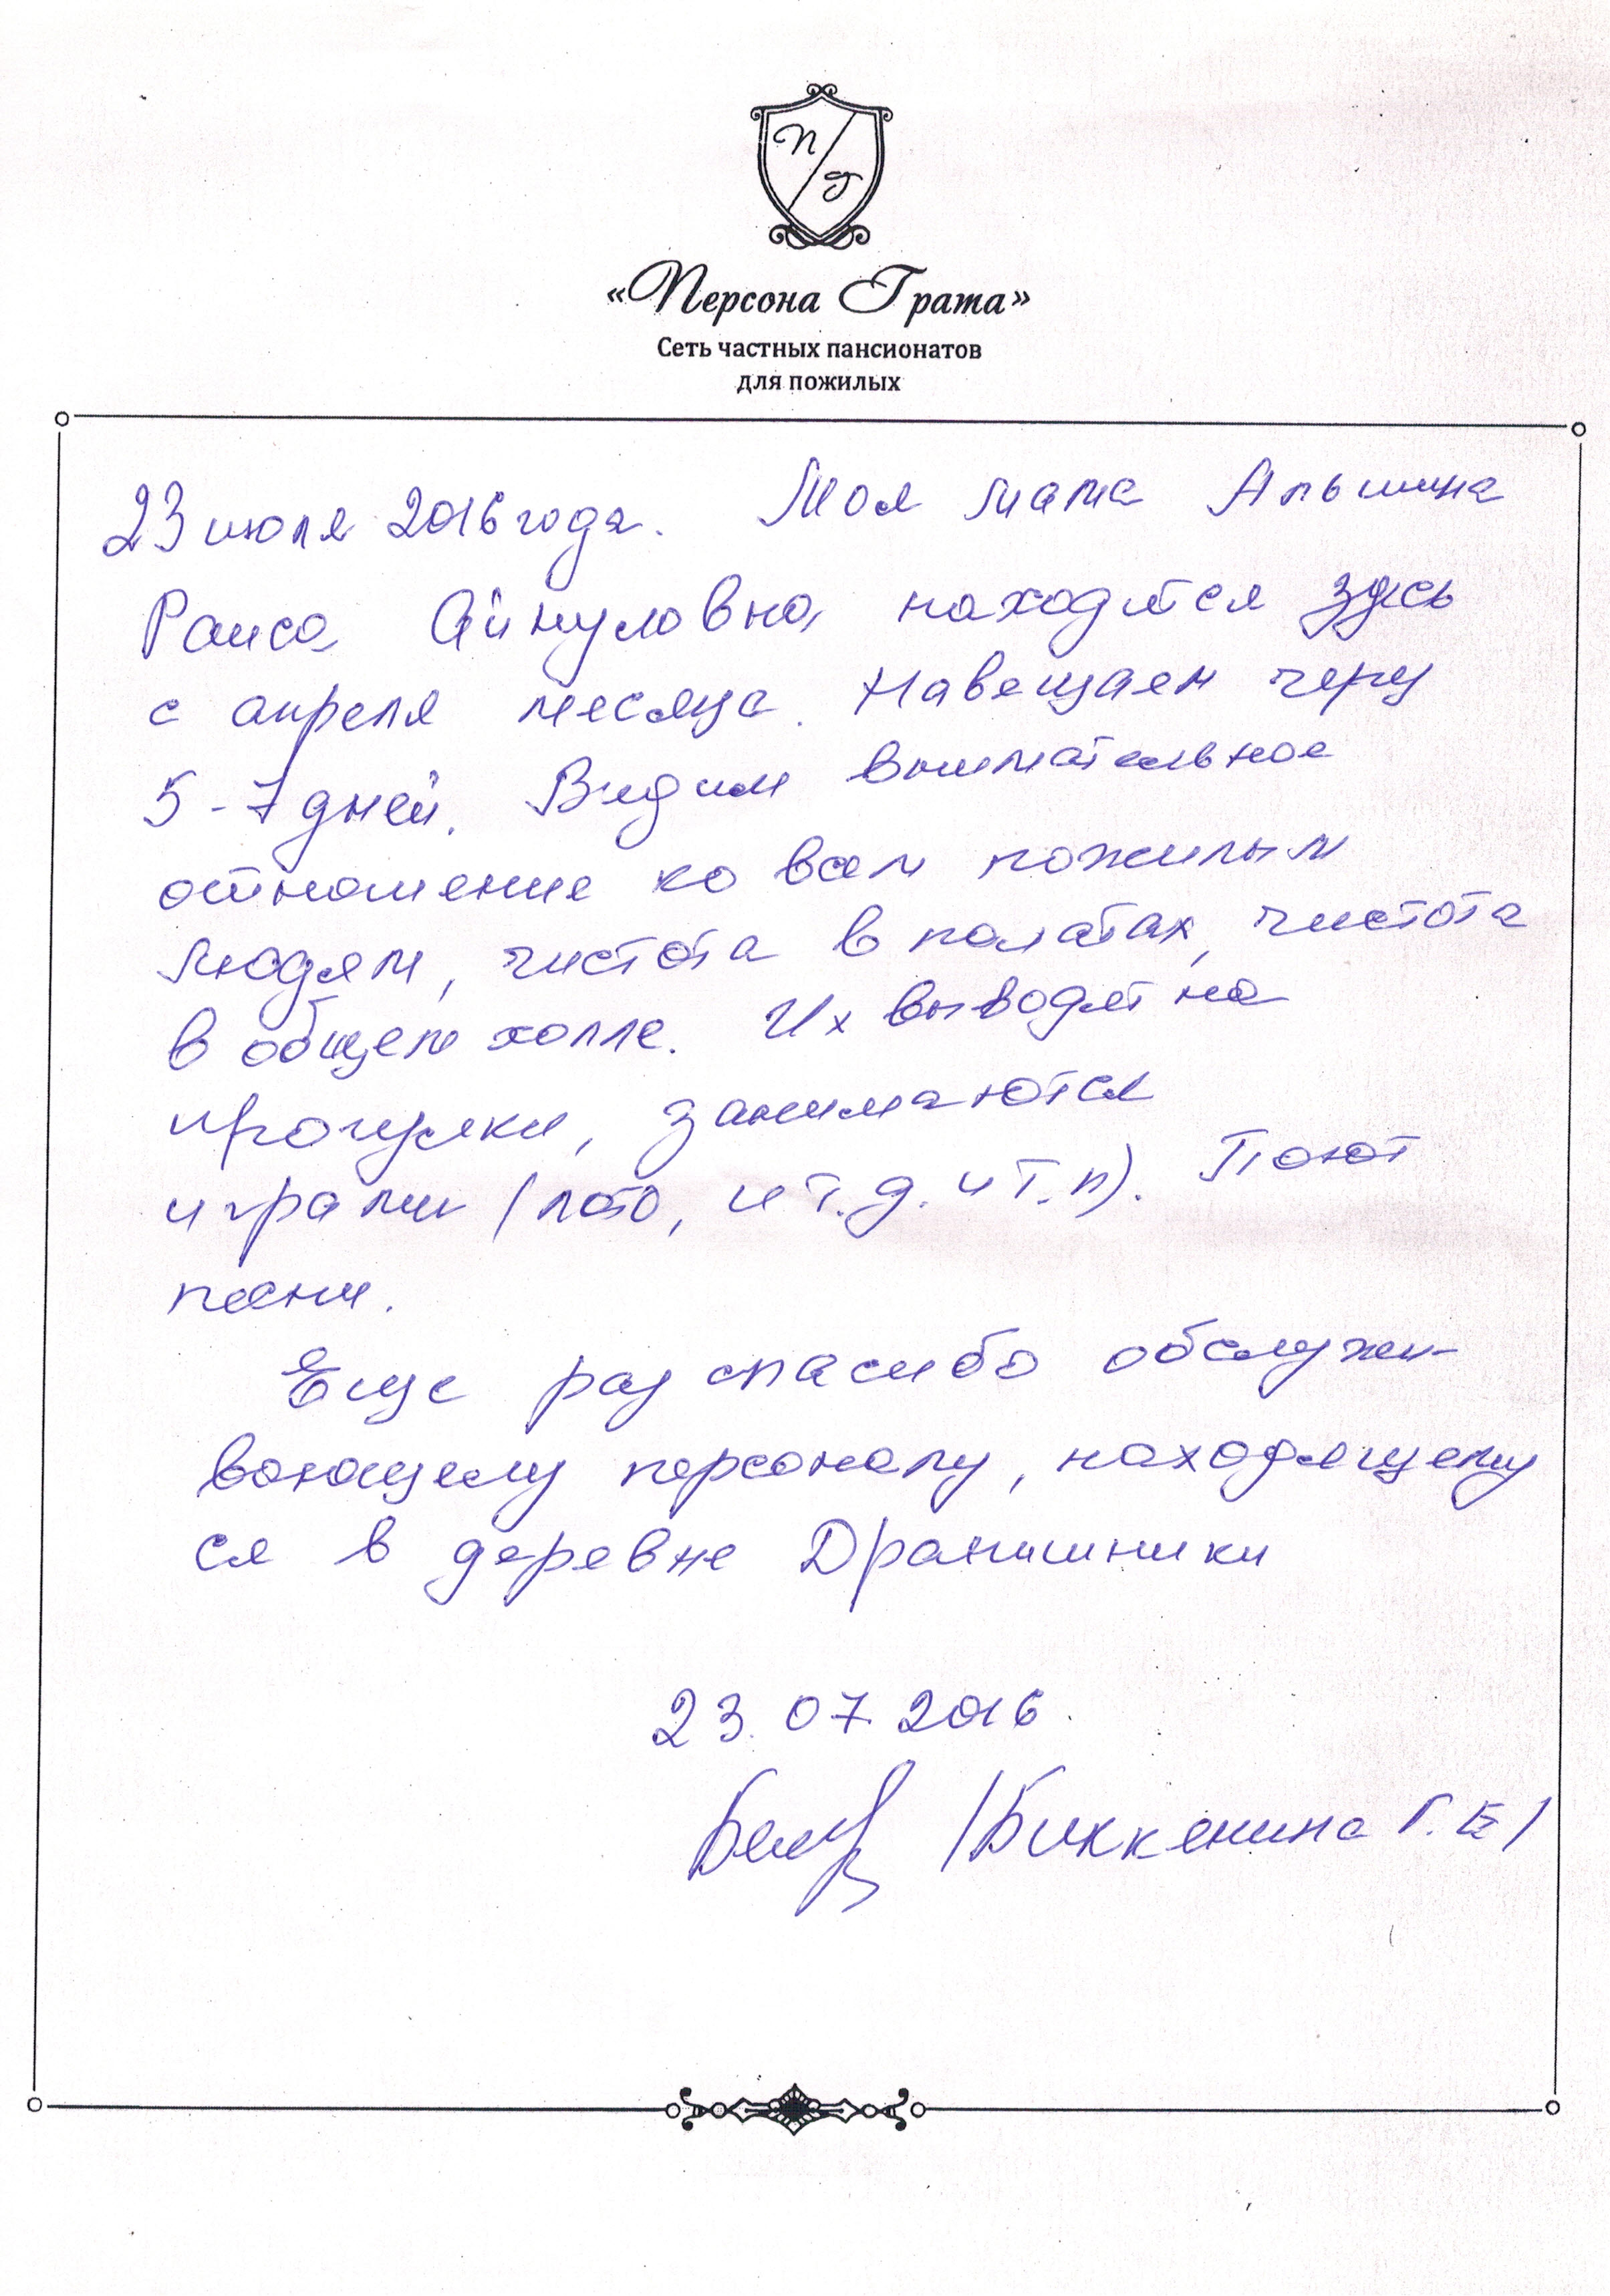 П
Г
«Персона Грата»
Сеть частных пансионатов
для пожилых
23 июля 2016 года. Моя мама Альшина
Раиса Айнуловна находится здесь
с апреля месяца. Навещаем через
5-7 дней. Видим внимательное
отношение ко всем пожилым
людям, чистота в палатах, чистота
в общем холле. Их выводят на
прогулки, занимаются
играми (лото, и т.д. и т.п). Поют
песни.
Еще раз спасибо обслужи-
вающему персоналу, находящему
ся в деревне Дранишники
23.07.2016.
/Биккенина Г. Е/